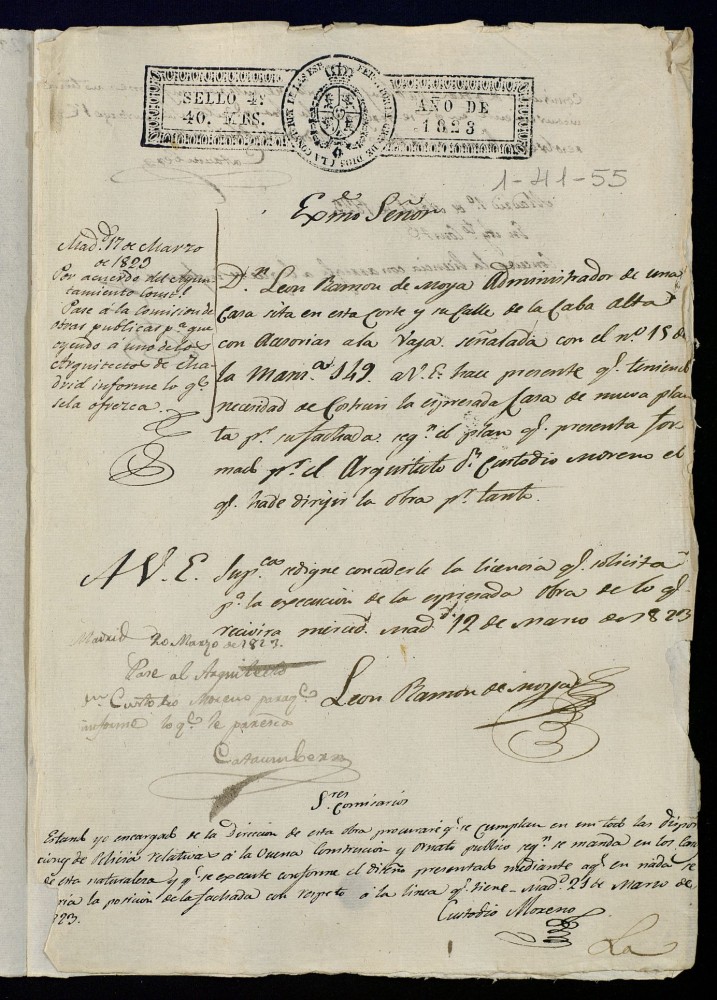 SELLO 4º
40. MRS.
AÑO DE
1823
1-41-55
Exmo Señor
Madd 17 de Marzo
de 1823
Por acuerdo del Ayun-
tamiento Constl
Pase á la Comision de
obras publicas pª que
oyendo á uno de los
Arquitectos de Ma-
drid informe lo qe
se la ofrezca.
Dn Leon Ramon de Moya Administrador de una
Casa sita en esta Corte y su Calle de la Caba Alta
con Acesorias a la Vaja señalada con el nº 15 de
la Manzª 149. a V.E. hace presente qe teniendo
necesidad de Costruir la espresada Casa de nueva plan
ta pr su fachada segn el plan qe presenta for
mado pr el Arquitecto Dn Custodio Moreno el
qe ha de dirijir la obra pr tanto.
A V. E. Supcª se digne concederle la licencia qe solicita
pª la execucion de la espresada obra de lo qe
recivira merced. Madd 12 de Marzo de 1823
Leon Ramon de Moya
Madrid 20 Marzo de 1823.
Pase al Arquitecto
Dn Custodio Moreno para qe
informe lo qe le paresca
Sres Comisarios
Estando yo encargado de la Direccion de esta obra procuraré qe se cumplan en un todo las dispo
ciones de Policia relativas á la buena Construcion y Ornato publico segn se manda en los
de esta naturaleza y qe se execute conforme el diseño presentado mediante a qe en nada se
ria la posicion de la fachada con respeto á la linea qe tiene. Madd 21 de Marzo de
823.
Custodio Moreno
La